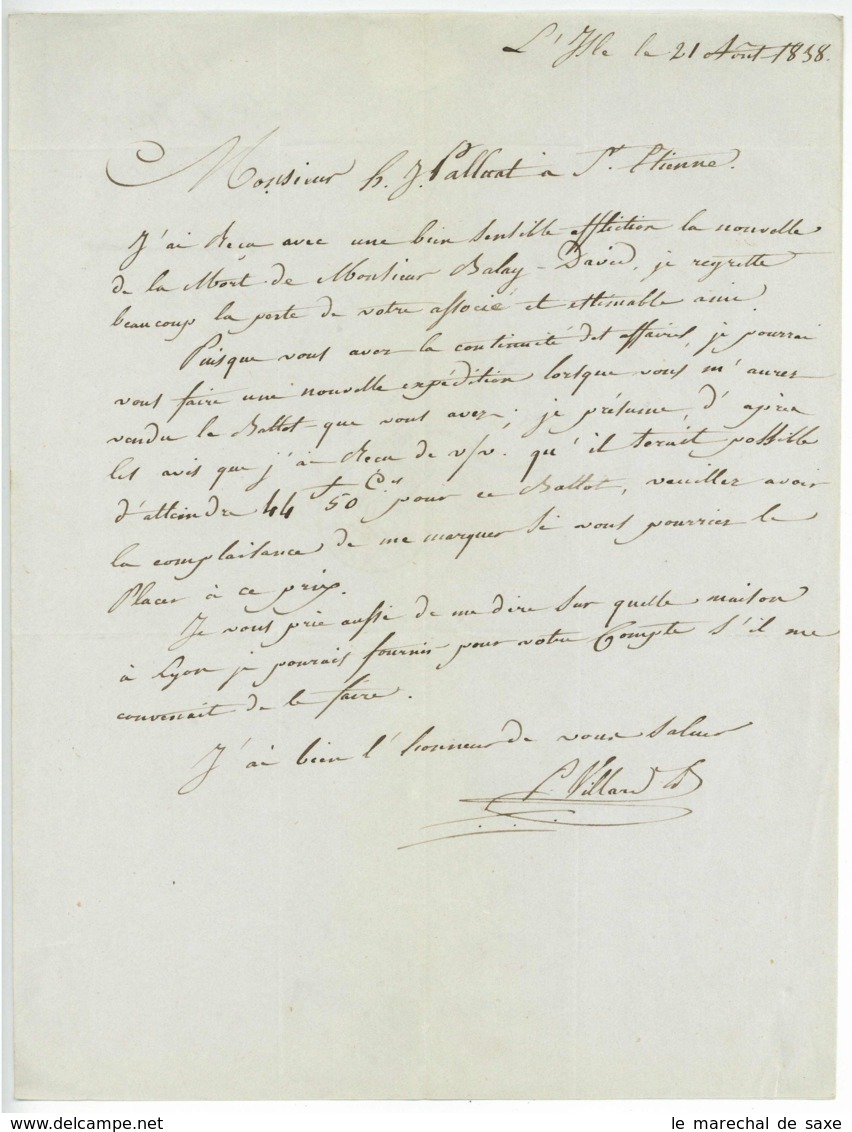 L'Isle le 21 Août 1838.
Monsieur h. J. Palluat à St. Etienne.
J'ai Reçu avec une bien sensible affliction la nouvelle
de la Mort de Monsieur Balay-David, je regrette
beaucoup la perte de votre associé et estimable ami.
Puisque vous avez la continuité des affaires, je pourrai
vous faire une nouvelle expédition lorsque vous m'aurez
vendu le Ballot que vous avez; je présume, d'après
les avis que j'ai Recu de v/v. qu'il serait possible
d'atteindre 44 f 50 Cs pour ce Ballot, veuillez avoir
la complaisance de me marquer si vous pourriez le
Placer à ce prix.
Je vous prie aussi de me dire sur quelle maison
à Lyon je pourais fournir pour votre Compte s'il me
convenait de le faire.
J'ai bien l'honneur de vous saluer
Villard
le marechal de saxe